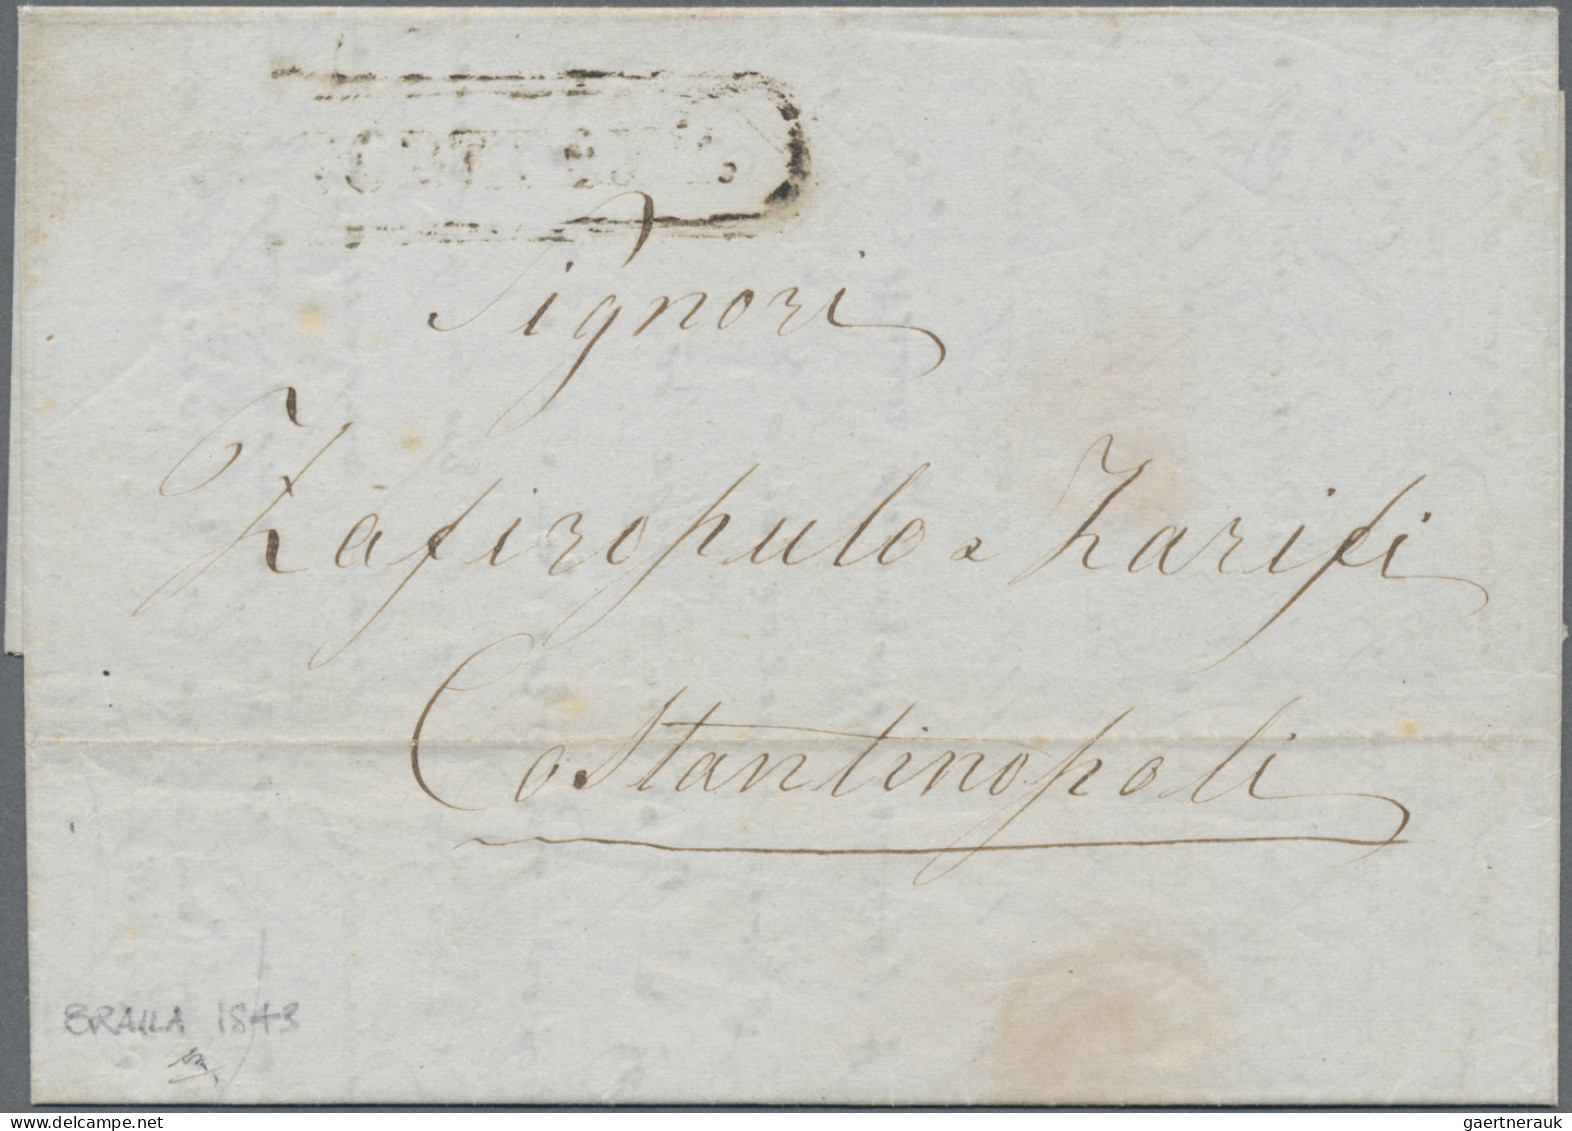 Signori
Zafiropulo & Zarifi
Costantinopoli
BRAILA 1843
gaertnerauk